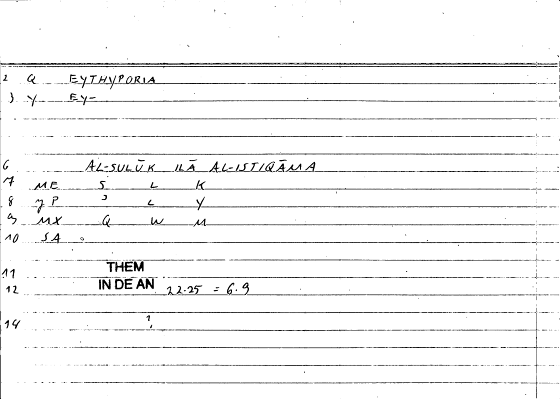 2 Q EYTHYPORIA
3 Y EY-
6 AL-SULŪK ILĀ AL-ISTIQĀMA
7 ME S L K
8 yP ʾ L Y
9 MX Q W M
10 SA 0
11 THEM
12 IN DE AN 22.25 = 6.9
14 1,